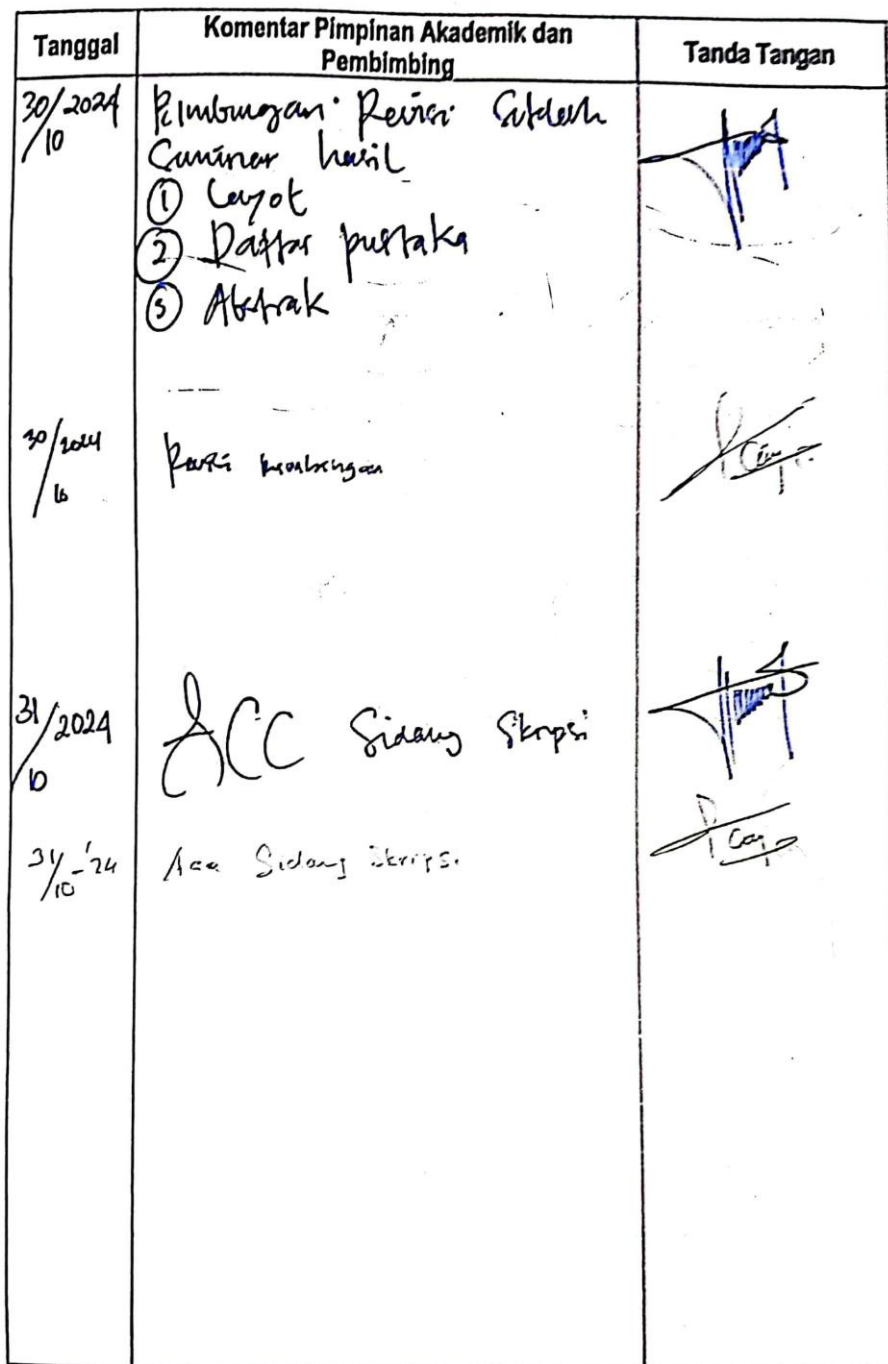 Tanggal
Komentar Pimpinan Akademik dan
Pembimbing
Tanda Tangan
30/2024
/10
Bimbingan Revisi Setelah
Seminar hasil
① Layot
② Daftar pustaka
③ Abstrak
30/2024
/10
Revisi
31/2024
10
ACC Sidang Skripsi
31/10-'24
Acc Sidang Skripsi